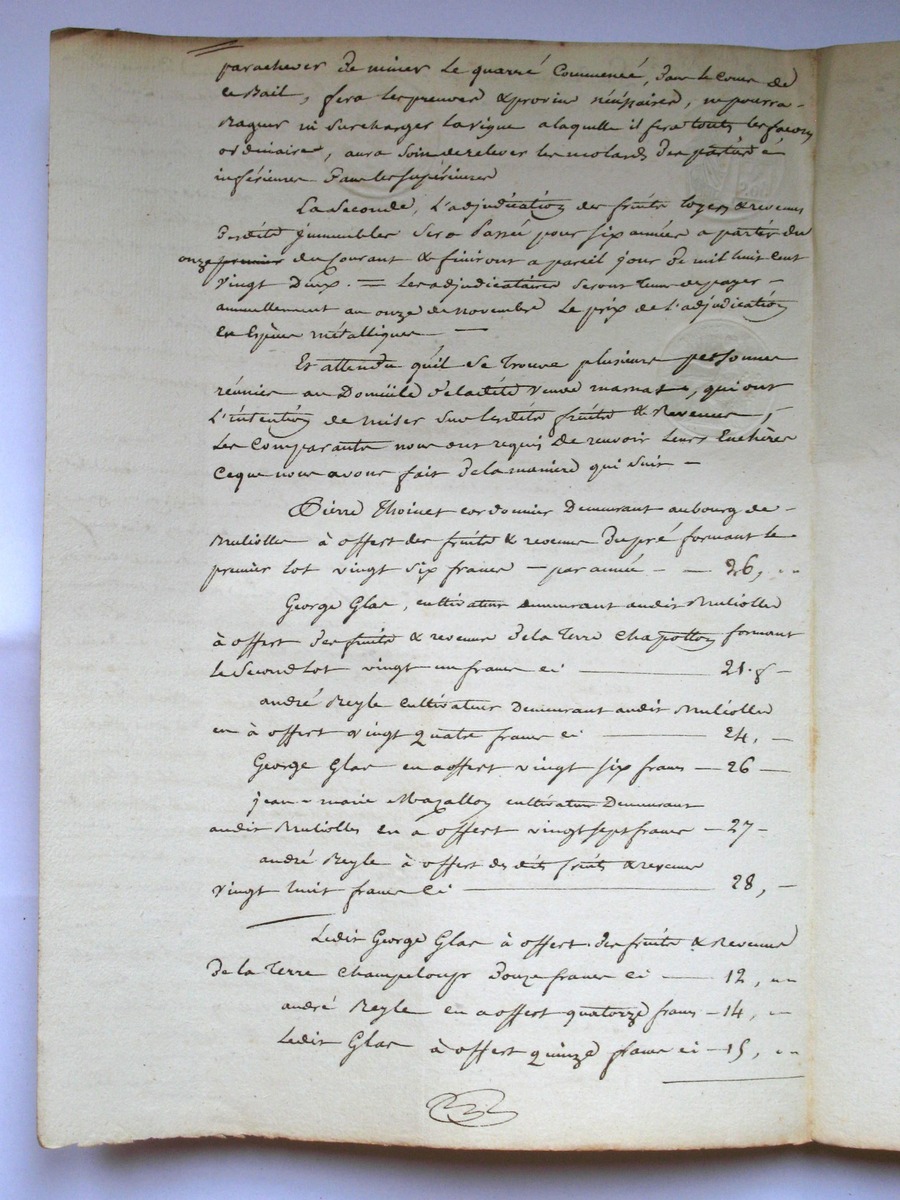 parachever de miner le quarré Commencé, dans le cours de
ce Bail, fera les preuves & provin nécéssaires, ne pourra
Ragner ni Surcharger la vigne a laquelle il fera touts les façons
ordinaires, aura soin de relever les molards des parties
inférieures dans les supérieures
La Seconde, L'adjudication des fruits loyers & revenus
desdits jmmeubles sera Passée pour six années a partir du
onze premier du Courant & finiront a pareil jour de mil huit cent
vingt deux. = Les adjudicataires seront tenus de payer
annuellement au onze de novembre Le prix de L'adjudication
en Espèces métalliques
Et attendu qu'il se trouve plusieurs personnes
réunies au Domicile de ladite veuve, qui ont
L'intention de miser sur lesdits fruits & Revenus,
Les Comparants nous ont requis De recevoir Leurs Enchères
Ceque nous avons fait de la manière qui suit
Pierre Thoinet cordonnier Demeurant au bourg de
à offert des fruits & revenus du pré formant le
premier lot vingt six francs par année 26,
George Glas, cultivateur demeurant audit
à offert des fruits & revenus de la Terre Chapotton formant
le Second lot vingt un francs ci 21.f
andré Reyle Cultivateur Demeurant audit
en à offert vingt quatre francs ci 24,
George Glas en a offert vingt six francs 26
jean-marie Mazallon cultivateur Demeurant
audit en à offert vingt sept francs 27
andré Reyle à offert des dits fruits & revenus
vingt huit francs Ci 28,
Ledit George Glas à offert des fruits & Revenus
De la Terre Champeloup Douze francs ci 12,
andré Reyle en a offert quatorze francs 14,
Ledit Glas à offert quinze francs ci 15,